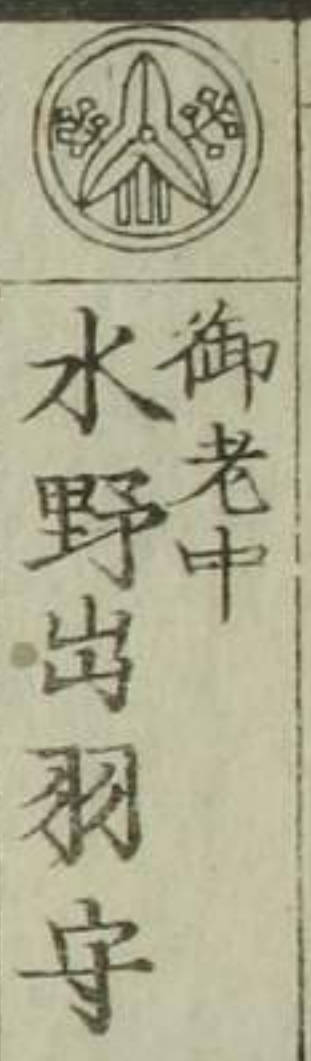 御老中
水野出羽守